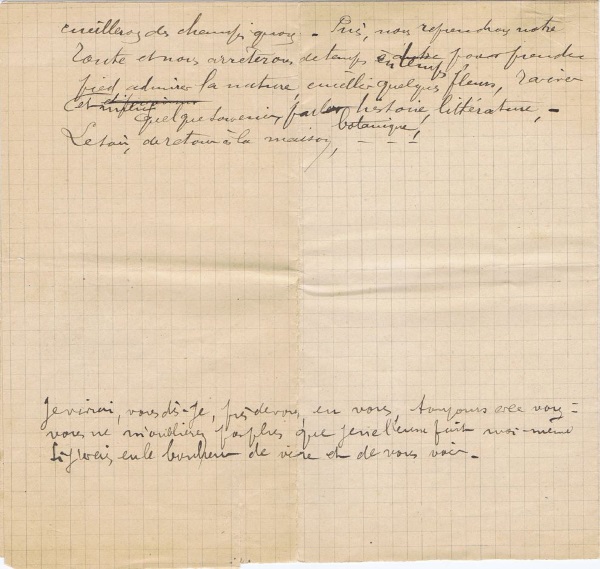 cueillerons des champignons - Puis, nous reprendrons notre
route et nous arrêterons de temps en temps pour prendre
pied, admirer la nature cueillir quelques fleurs, raviver
quelque souvenir, parler histoire, littérature, -
botanique,
Le soir, de retour à la maison, - - -
Je vivrai, vous dis-je, près de vous, en vous, toujours avec vous -
vous ne m'oublierez pas plus que je ne l'eusse fait moi-même
Si j'avais eu le bonheur de vivre et de vous voir -